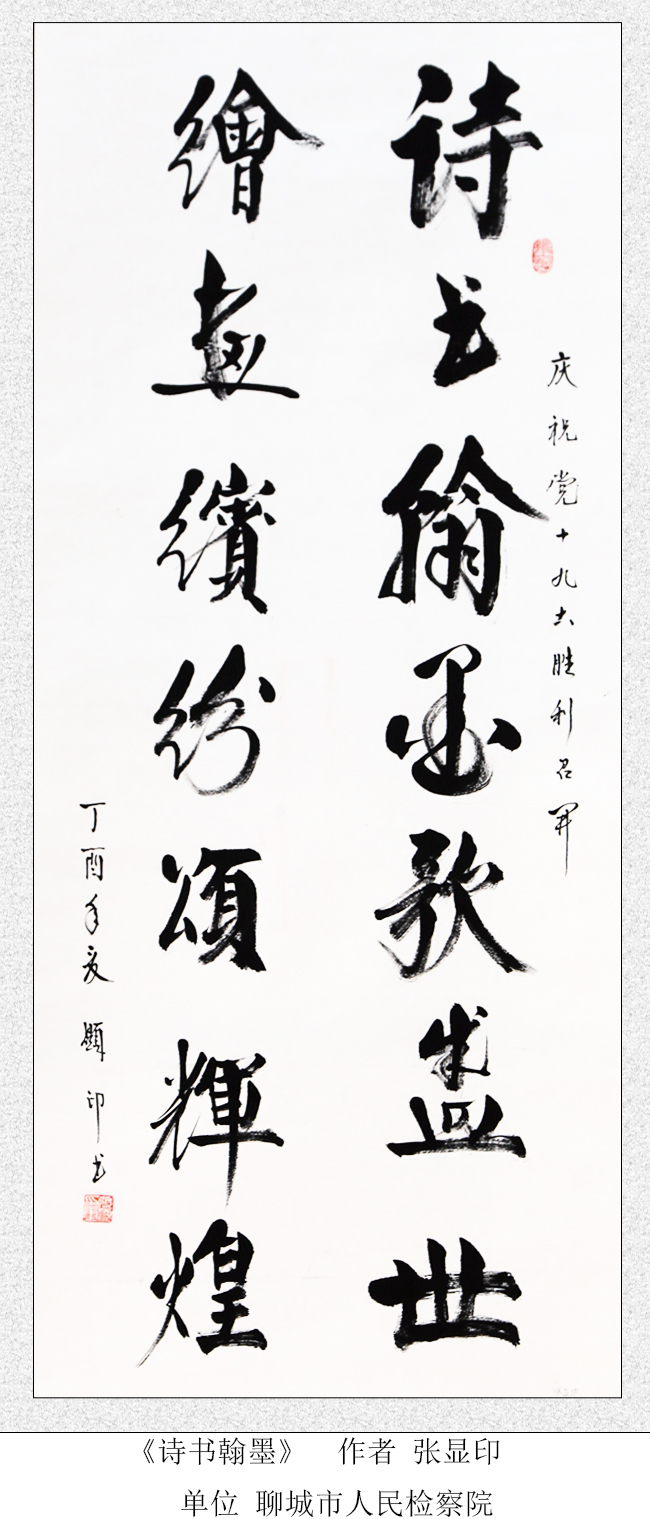 庆祝党十九大胜利召开
诗书翰墨歌盛世
繪畫繽紛頌輝煌
丁酉年夏 顯印书
《诗书翰墨》 作者 张显印
单位 聊城市人民检察院